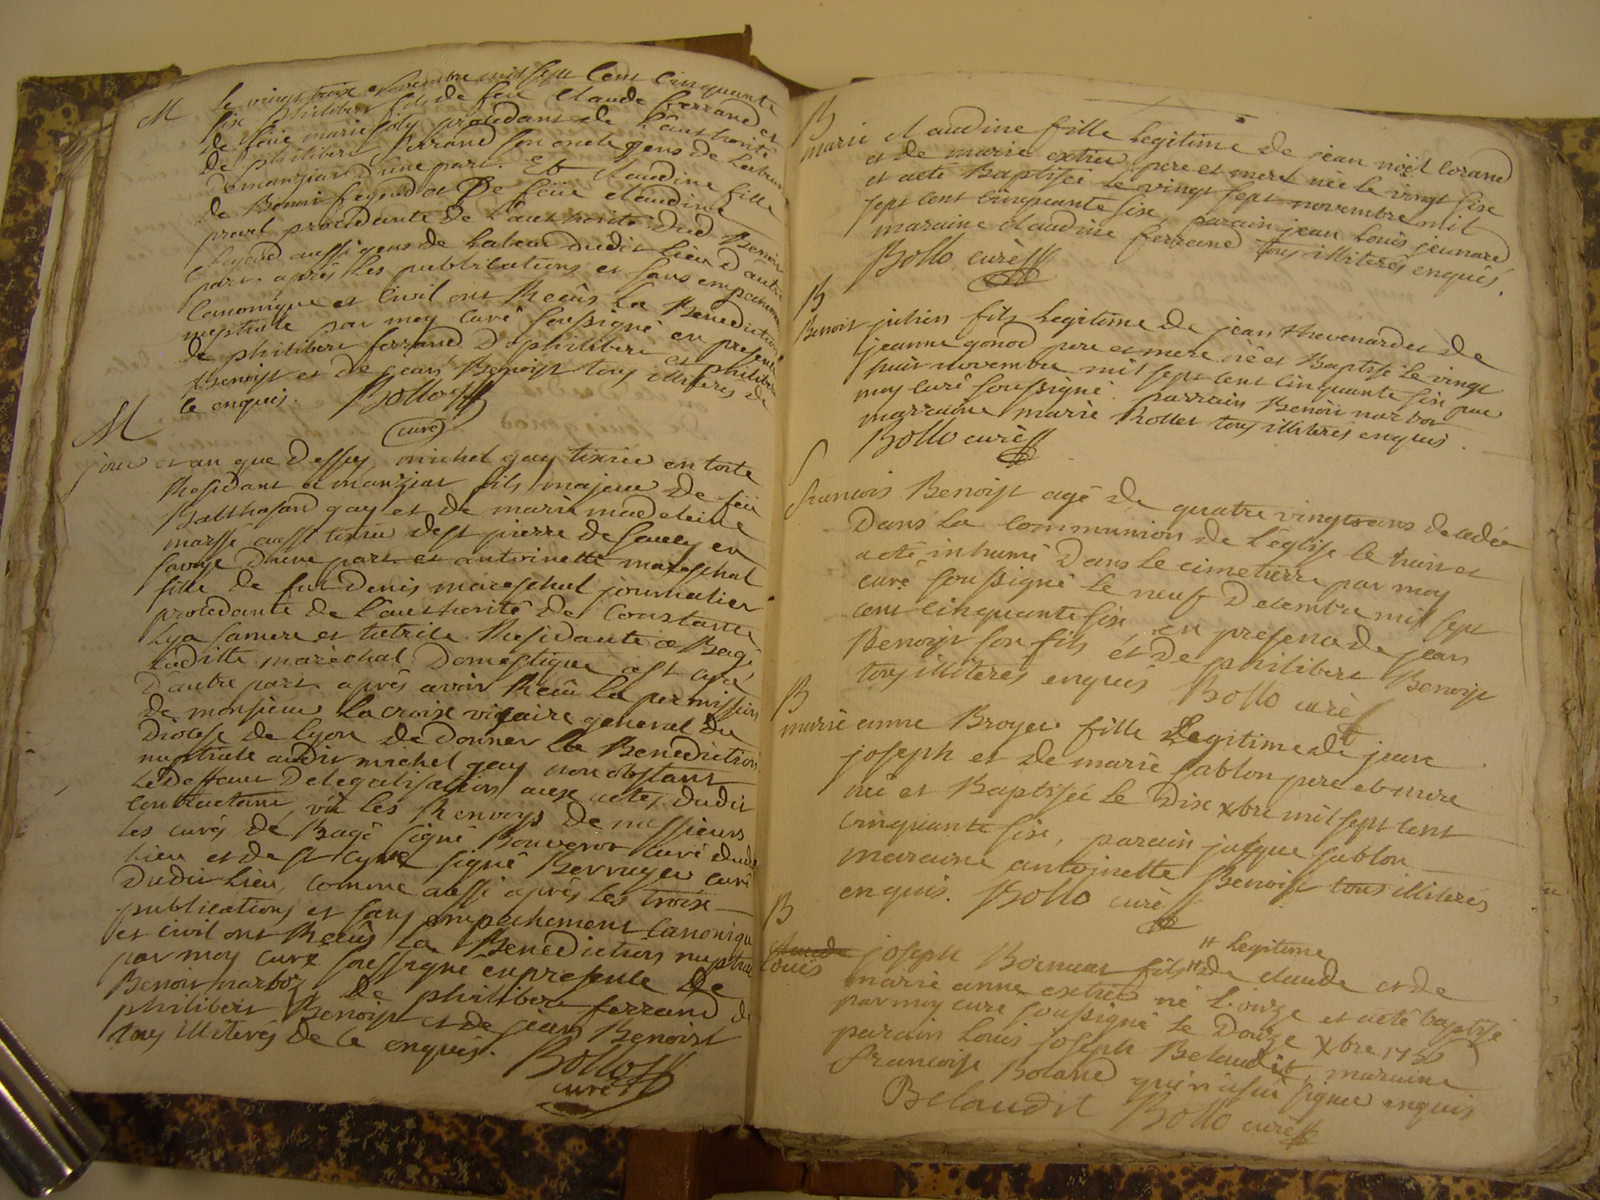 M
le vingt trois novembre mil sept cent cinquante
six philibert fils de feu Claude ferrand et
de feüe marie joly procedant de l'authorité
de philibert ferrand son oncle gens de labeur
demanziat d'une part. Et Claudine fille
de Benoit feyeud et de feüe claudine
pruel procedante de l'authorité dud Benoit
feyeud aussi gens de labeur dudit lieu d'autre
part. après les publications et sans empechement
Canonique et Civil ont Receüs la Benediction
nuptiale par moy Curé soussigné en presence
de philibert ferrand de philibert et philibert
Benoist et de jean Benoist tous illiteres de
ce enquis. Bollo
curé
M
jour et an que dessus michel gay tixier en toile
Residant a manziat fils majeur de feu
Balthasard gay et de marie madeleine
massé aussi tixier de st pierre de en
savoye d'une part et antoinette mareschal
fille de fut denis mareschal journalier
procedante de l'authorité de Constance
Lya sa mere et tutrice Residante a Bagé
Laditte marechal Domestique a st cyre
D'autre part après avoir Receü la permission
de monsieur Lacroix vicaire general du
Diocese de Lyon de donner la Benediction
nuptiale audit michel gay nonobstant
le deffaut de legalisation aux actes dudit
Contractant, vü les Renvoys de messieurs
les curés de Bagé signé Bouveret curé dudit
lieu et de st cyre signé Berruyer curé
dudit lieu, comme aussi après les trois
publications et sans empechement Canonique
et civil ont Receüs la Benediction nuptiale
par moy Curé soussigné en presence de
Benoit narboz de philibert ferrand de
philibert Benoist et de jean Benoist
tous illiterés de ce enquis.
Bollo
curé
B
marie claudine fille legitime de jean noël lorand
et de marie extrier pere et mere née le vingt six
et acté Baptisée le vingt sept novembre mil
sept cent cinquante six, parain jean Louis jeunard
maraine claudine ferrand tous illiterés enquis.
Bollo curé
B
Benoit julien fils legitime de jean thevenard et de
jeanne gonod pere et mere né et Baptisé le vingt
huit novembre mil sept cent cinquante six par
moy curé soussigné. parrain Benoit narboz
marraine marie Rollet tous illiterés enquis.
Bollo curé
S
francois Benoist agé de quatre vingts ans decedé
Dans la communion de l'église le huit et
a eté inhumé dans le cimetierre par moy
curé soussigné le neuf Decembre mil sept
cent cinquante six, en presence de jean
Benoist son fils et de philibert Benoist
tous illiterés enquis Bollo curé
B
marie anne Broyer fille Legitime de jean
joseph et de marie sablon pere et mere
née et Baptisée le dix xbre mil sept cent
cinquante six, parain jacque sablon
maraine antoinette Benoist tous illiterés
enquis. Bollo curé
B
Claude
Louis joseph Bornuat fils # de claude et de
# legitime
marie anne extrier né l'onze et acté baptisé
par moy curé soussigné le Douze xbre 1756
parain Louis joseph Belaudit, maraine
francoise Boland qui n'a sçü signer enquis
Belaudit Bollo curé